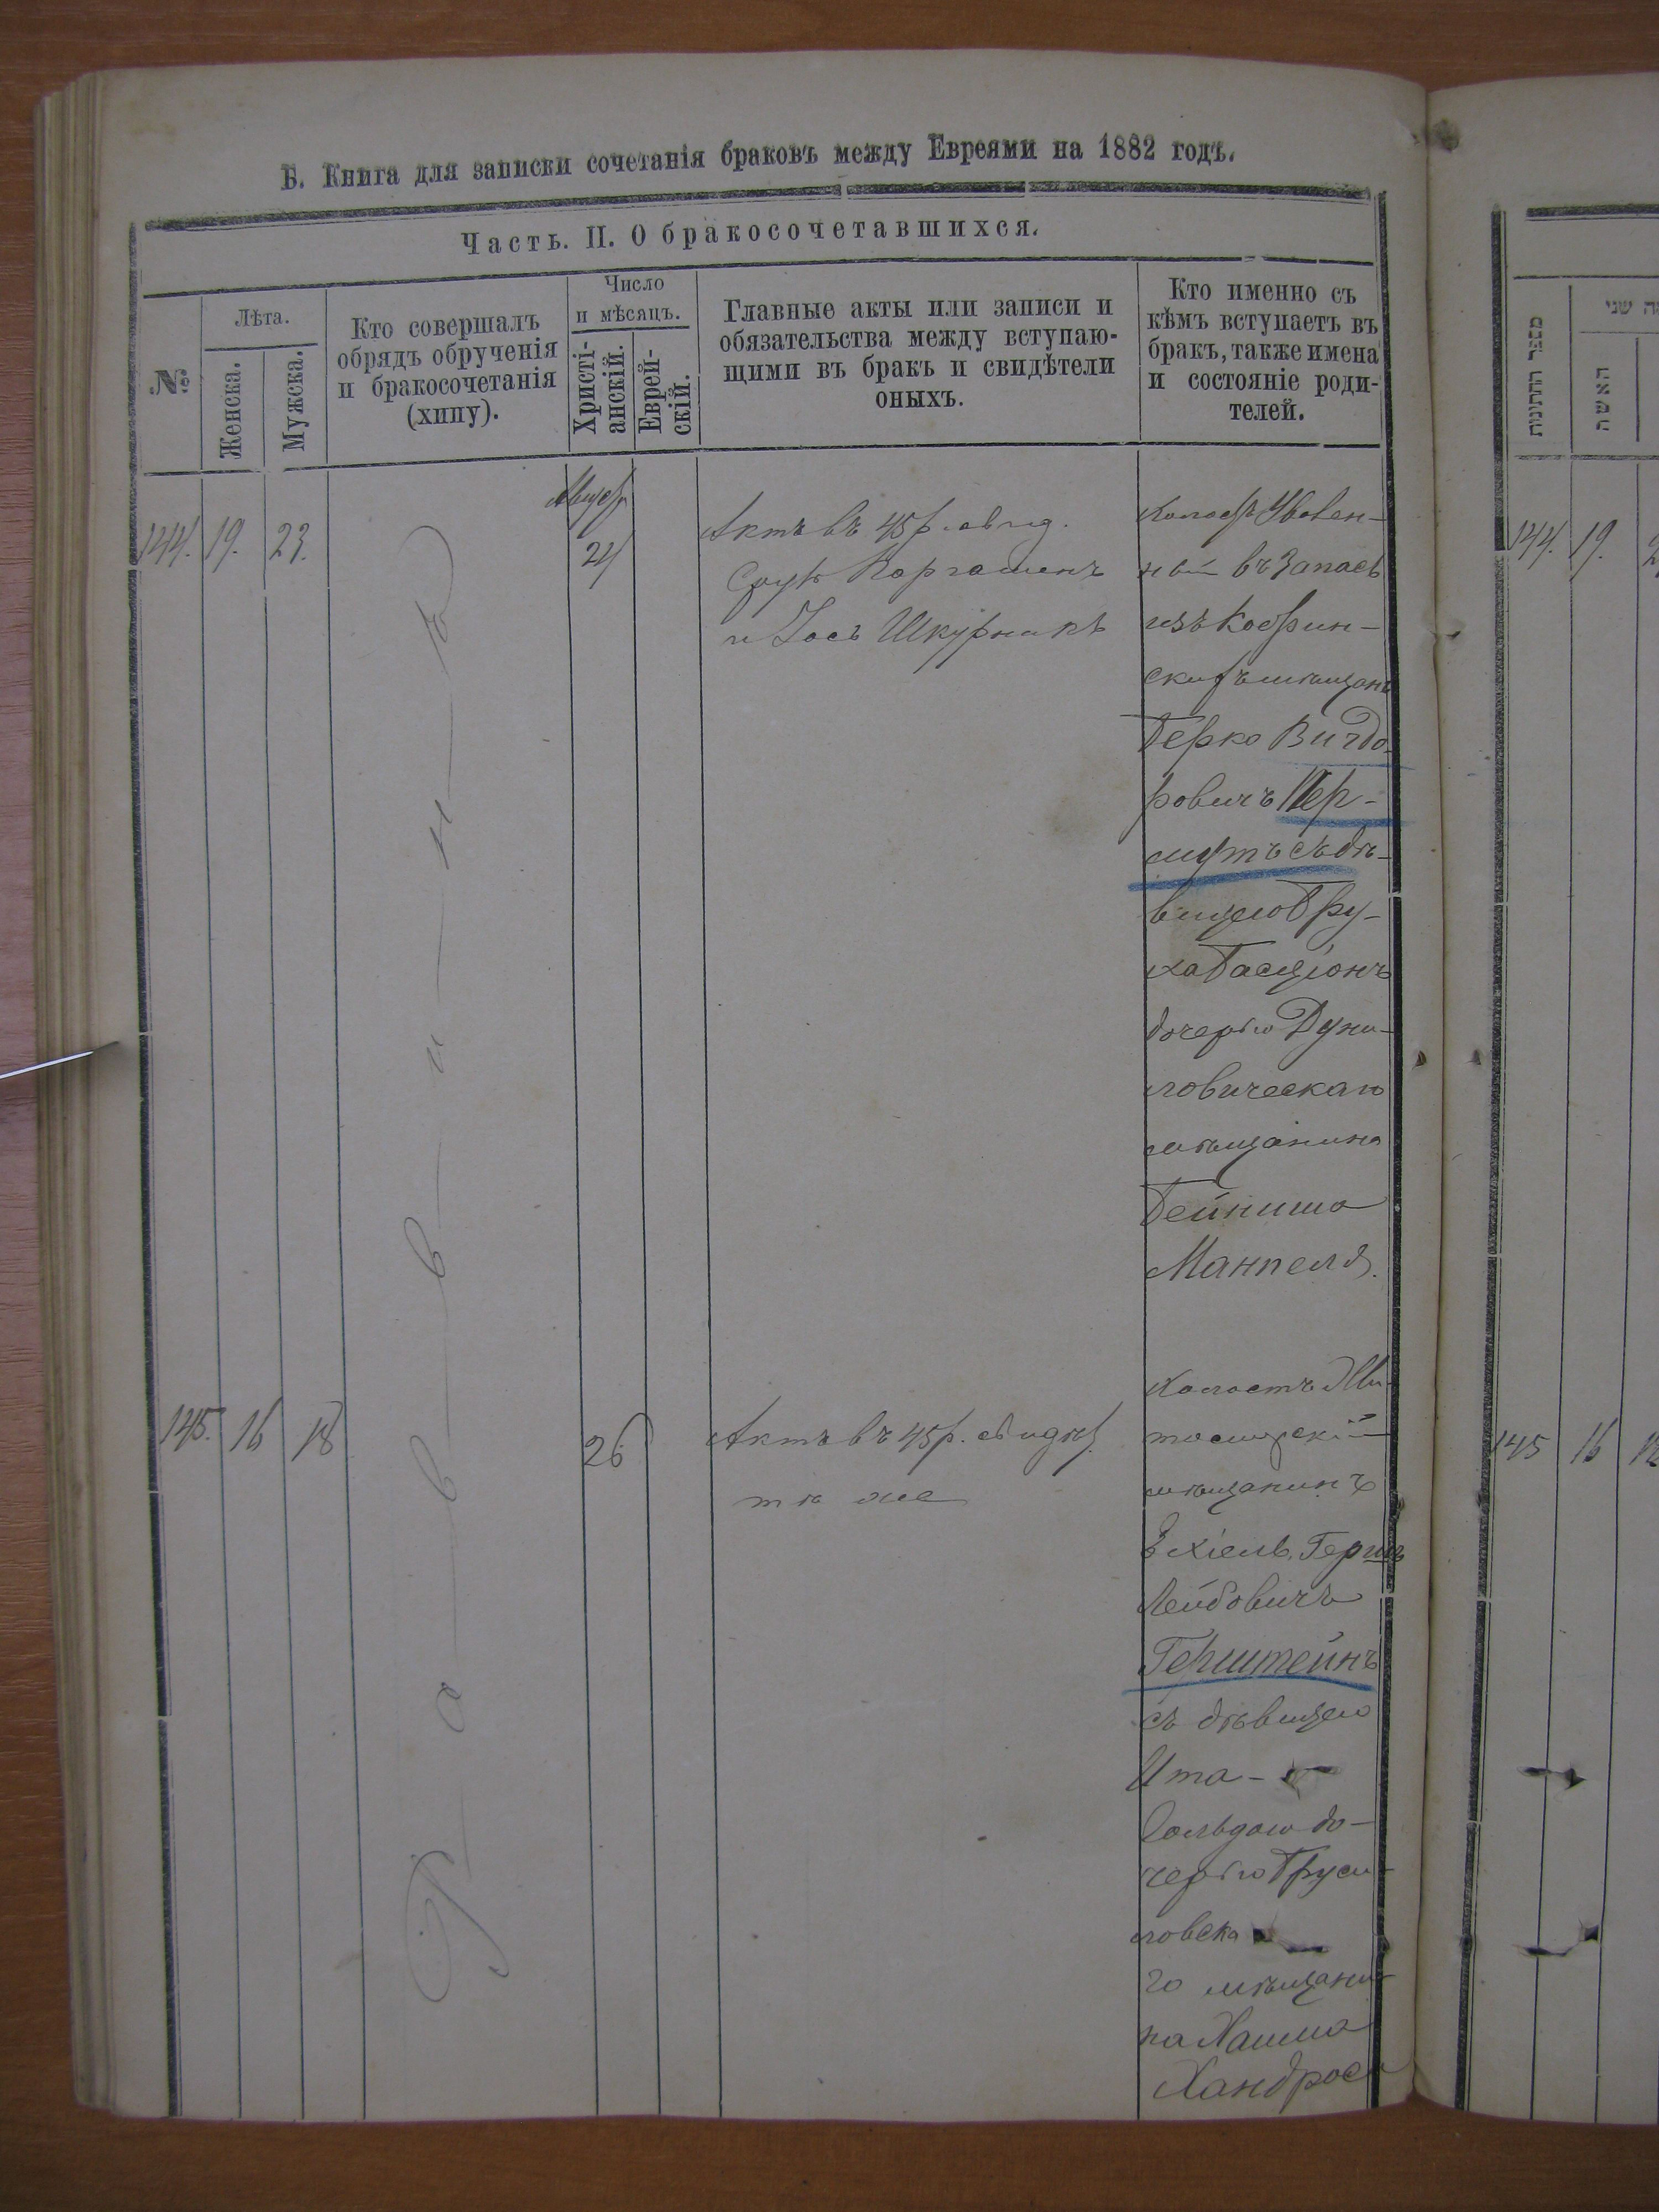 Б. Книга для записки сочетанія браковъ между Евреями на 1882 годъ.
Часть. II. О бракосочетавшихся.
№
Лѣта.
Женска.
Мужеска.
Кто совершалъ
обрядъ обрученія
и бракосочетанія
(хипу).
Число
и мѣсяцъ.
Христі-
анскій.
Еврей-
скій.
Главные акты или записи и
обязательства между вступаю-
щими въ бракъ и свидѣтели
оныхъ.
Кто именно съ
кѣмъ вступаетъ въ
бракъ, также имена
и состояніе роди-
телей.
144. 19. 23.
Раввинъ
24
Актъ въ 45 р. свид.
и Іось Шкурникъ
Холостъ Уволен-
ный въ Запасъ
изъ Кобрин-
скихъ мѣщанъ
Берко Вигдо-
ровичъ Пер-
мутъ съ дѣ-
вицею Бру-
ха
дочерью Дуни-
ловическаго
мѣщанина
Бейниша
Манпеля.
145. 16 18
26
Актъ въ 45 р. свидѣт.
тѣ же
Холостъ Жи-
томирскій
мѣщанинъ
Ехіель Гершъ
Лейбовичъ
Герштейнъ
съ дѣвицею
Ита-
Гольдою до-
черью Бруси-
ловска
го мѣщани-
на Хаима
Хандроса
מספר החתונות
האשה
144. 19.
145 16